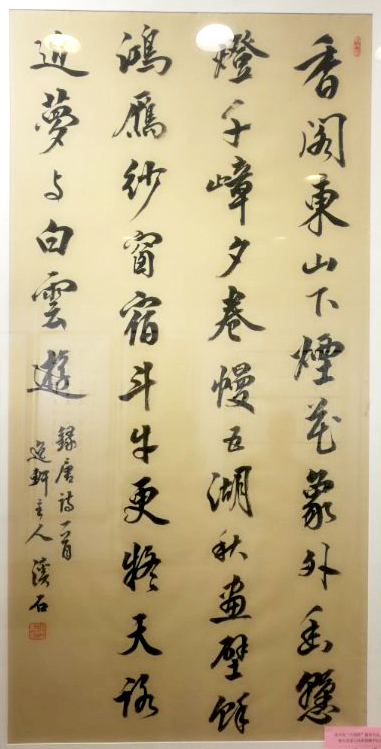 香閣東山下煙花象外幽懸
燈千嶂夕卷幔五湖秋畫壁餘
鴻鴈紗窗宿斗牛更疑天路
近夢与白雲遊
錄唐詩一首
逸軒主人溪石